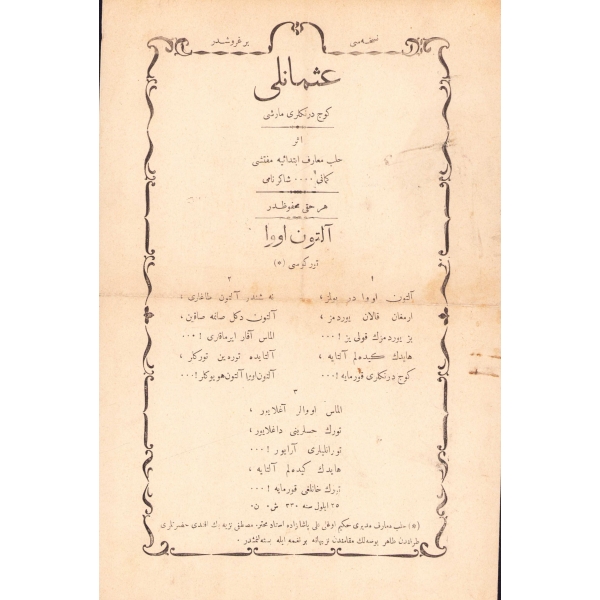 نسخه‌سی بر غروشدر
عثمانلی
كوچ درنكلری مارشی
اثر
حلب معارف ابتدائیه مفتشی
كمانی ۰۰۰۰ شاكر نامی
هر حقی محفوظدر
آلتون اووا
توركوسی (*)
۱
آلتون اووا در سویلر ،
ارمغان قالان یوردمز ،
بز یوردمزك قولی یز ! ۰۰۰
هایدك كیده‌لم آلتایه ،
كوچ درنكلری قورمایه !۰۰۰
۲
نه شندر آلتون طاغاری ،
آلتون دكل صانمه صاقین ،
الماس آقار ایرماقاری ! ۰۰۰
آلتایده توره‌ین توركلر ،
آلتون اووا آلتون هویوكلر !۰۰۰
۳
الماس اووالر آغلایور ،
تورك حسلرینی داغلایور ،
تورانلیاری آرایور ! ۰۰۰
هایدك كیده‌لم آلتایه ،
تورك خانلغی قورمایه ! ۰۰۰
۲۵ ایلول سنه ۳۳۰ ش ۰ ن ۰
(*) حلب معارف مدیری حكیم اوغلی علی پاشازاده استاد محترم مصطفی نزیه بك افندی حضرتلری
طرفندن طاهر بوسه‌لك مقامندن بو نغمه ایله بسته‌لنمشدر ۰